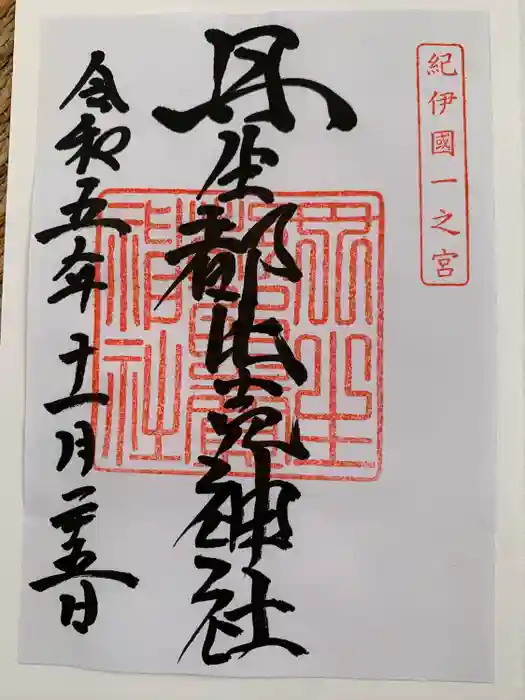 紀伊國一之宮
丹生都比売神社
令和五年十一月二十五日
丹生
都比賣
神社